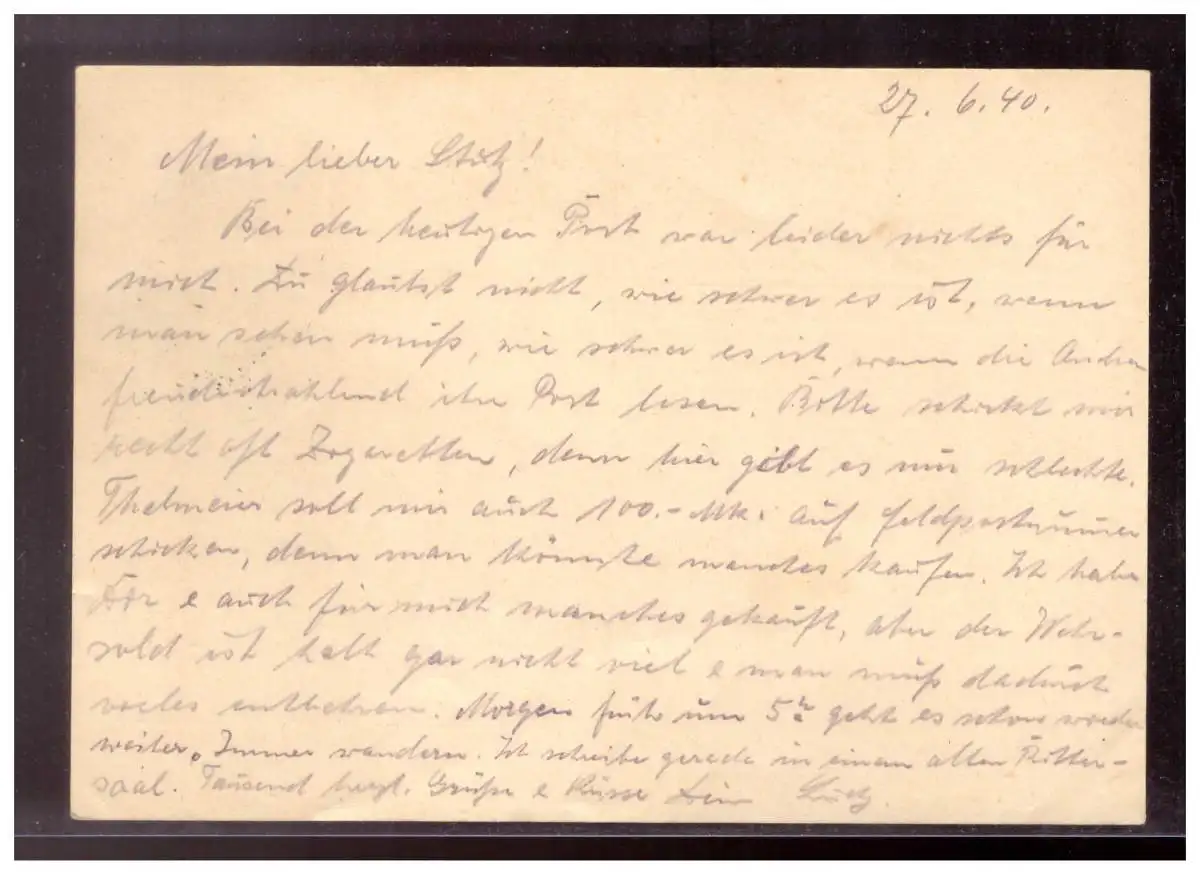 27. 6. 40.
Mein lieber Stutz!
Bei der heutigen Post war leider nichts für
mich. Du glaubst nicht, wie schwer es ist, wenn
man sehen muß, wie schwer es ist, wenn die Andren
freudestrahlend ihre Post lesen. Bitte schickt mir
recht oft Zigaretten, denn hier gibt es nur schlechte.
Thelmeier soll mir auch 100.- Mk. auf Feldpostnummer
schicken, denn man könnte manches kaufen. Ich habe
Dir & auch für mich manches gekauft, aber der Wehr-
sold ist halt gar nicht viel & man muß dadurch
vieles entbehren. Morgen früh um 5 h geht es schon wieder
weiter. Immer wandern. Ich schreibe gerade in einem alten Ritter-
saal. Tausend herzl. Grüße & Küsse Dein Lutz.